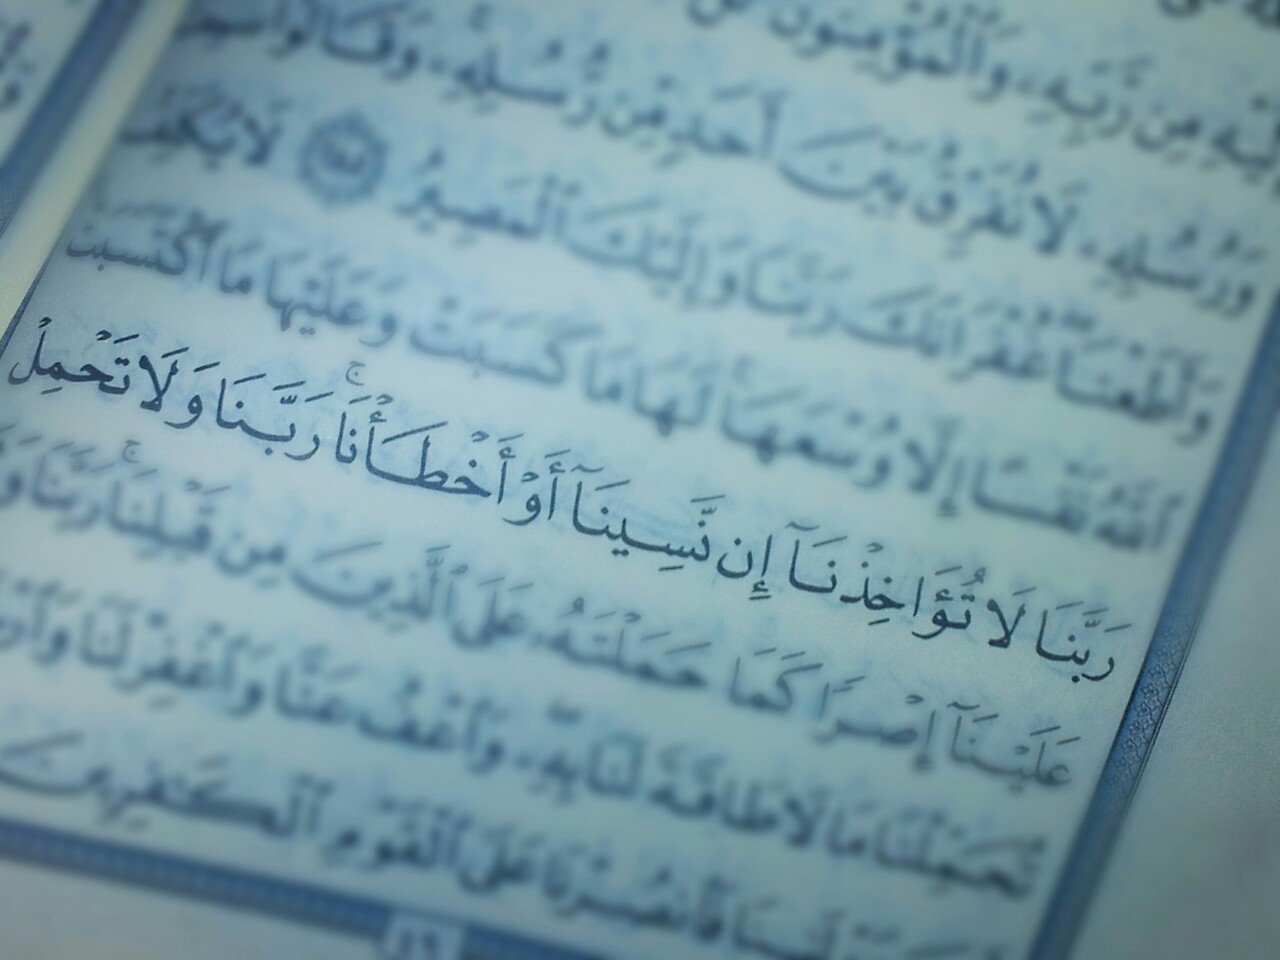 إِلَيْهِ مِن رَّبِّهِۦ وَٱلْمُؤْمِنُونَ
وَرُسُلِهِۦ لَا نُفَرِّقُ بَيْنَ أَحَدٍ مِّن رُّسُلِهِۦ وَقَالُوا۟
وَأَطَعْنَا غُفْرَانَكَ رَبَّنَا وَإِلَيْكَ ٱلْمَصِيرُ ٢٨٥ لَا يُكَلِّفُ
ٱللَّهُ نَفْسًا إِلَّا وُسْعَهَا لَهَا مَا كَسَبَتْ وَعَلَيْهَا مَا ٱكْتَسَبَتْ
رَبَّنَا لَا تُؤَاخِذْنَآ إِن نَّسِينَآ أَوْ أَخْطَأْنَا ۚ رَبَّنَا وَلَا تَحْمِلْ
عَلَيْنَآ إِصْرًا كَمَا حَمَلْتَهُۥ عَلَى ٱلَّذِينَ مِن قَبْلِنَا ۚ رَبَّنَا
تُحَمِّلْنَا مَا لَا طَاقَةَ لَنَا بِهِۦ وَٱعْفُ عَنَّا وَٱغْفِرْ لَنَا
فَٱنصُرْنَا عَلَى ٱلْقَوْمِ ٱلْكَٰفِرِينَ
٤٩